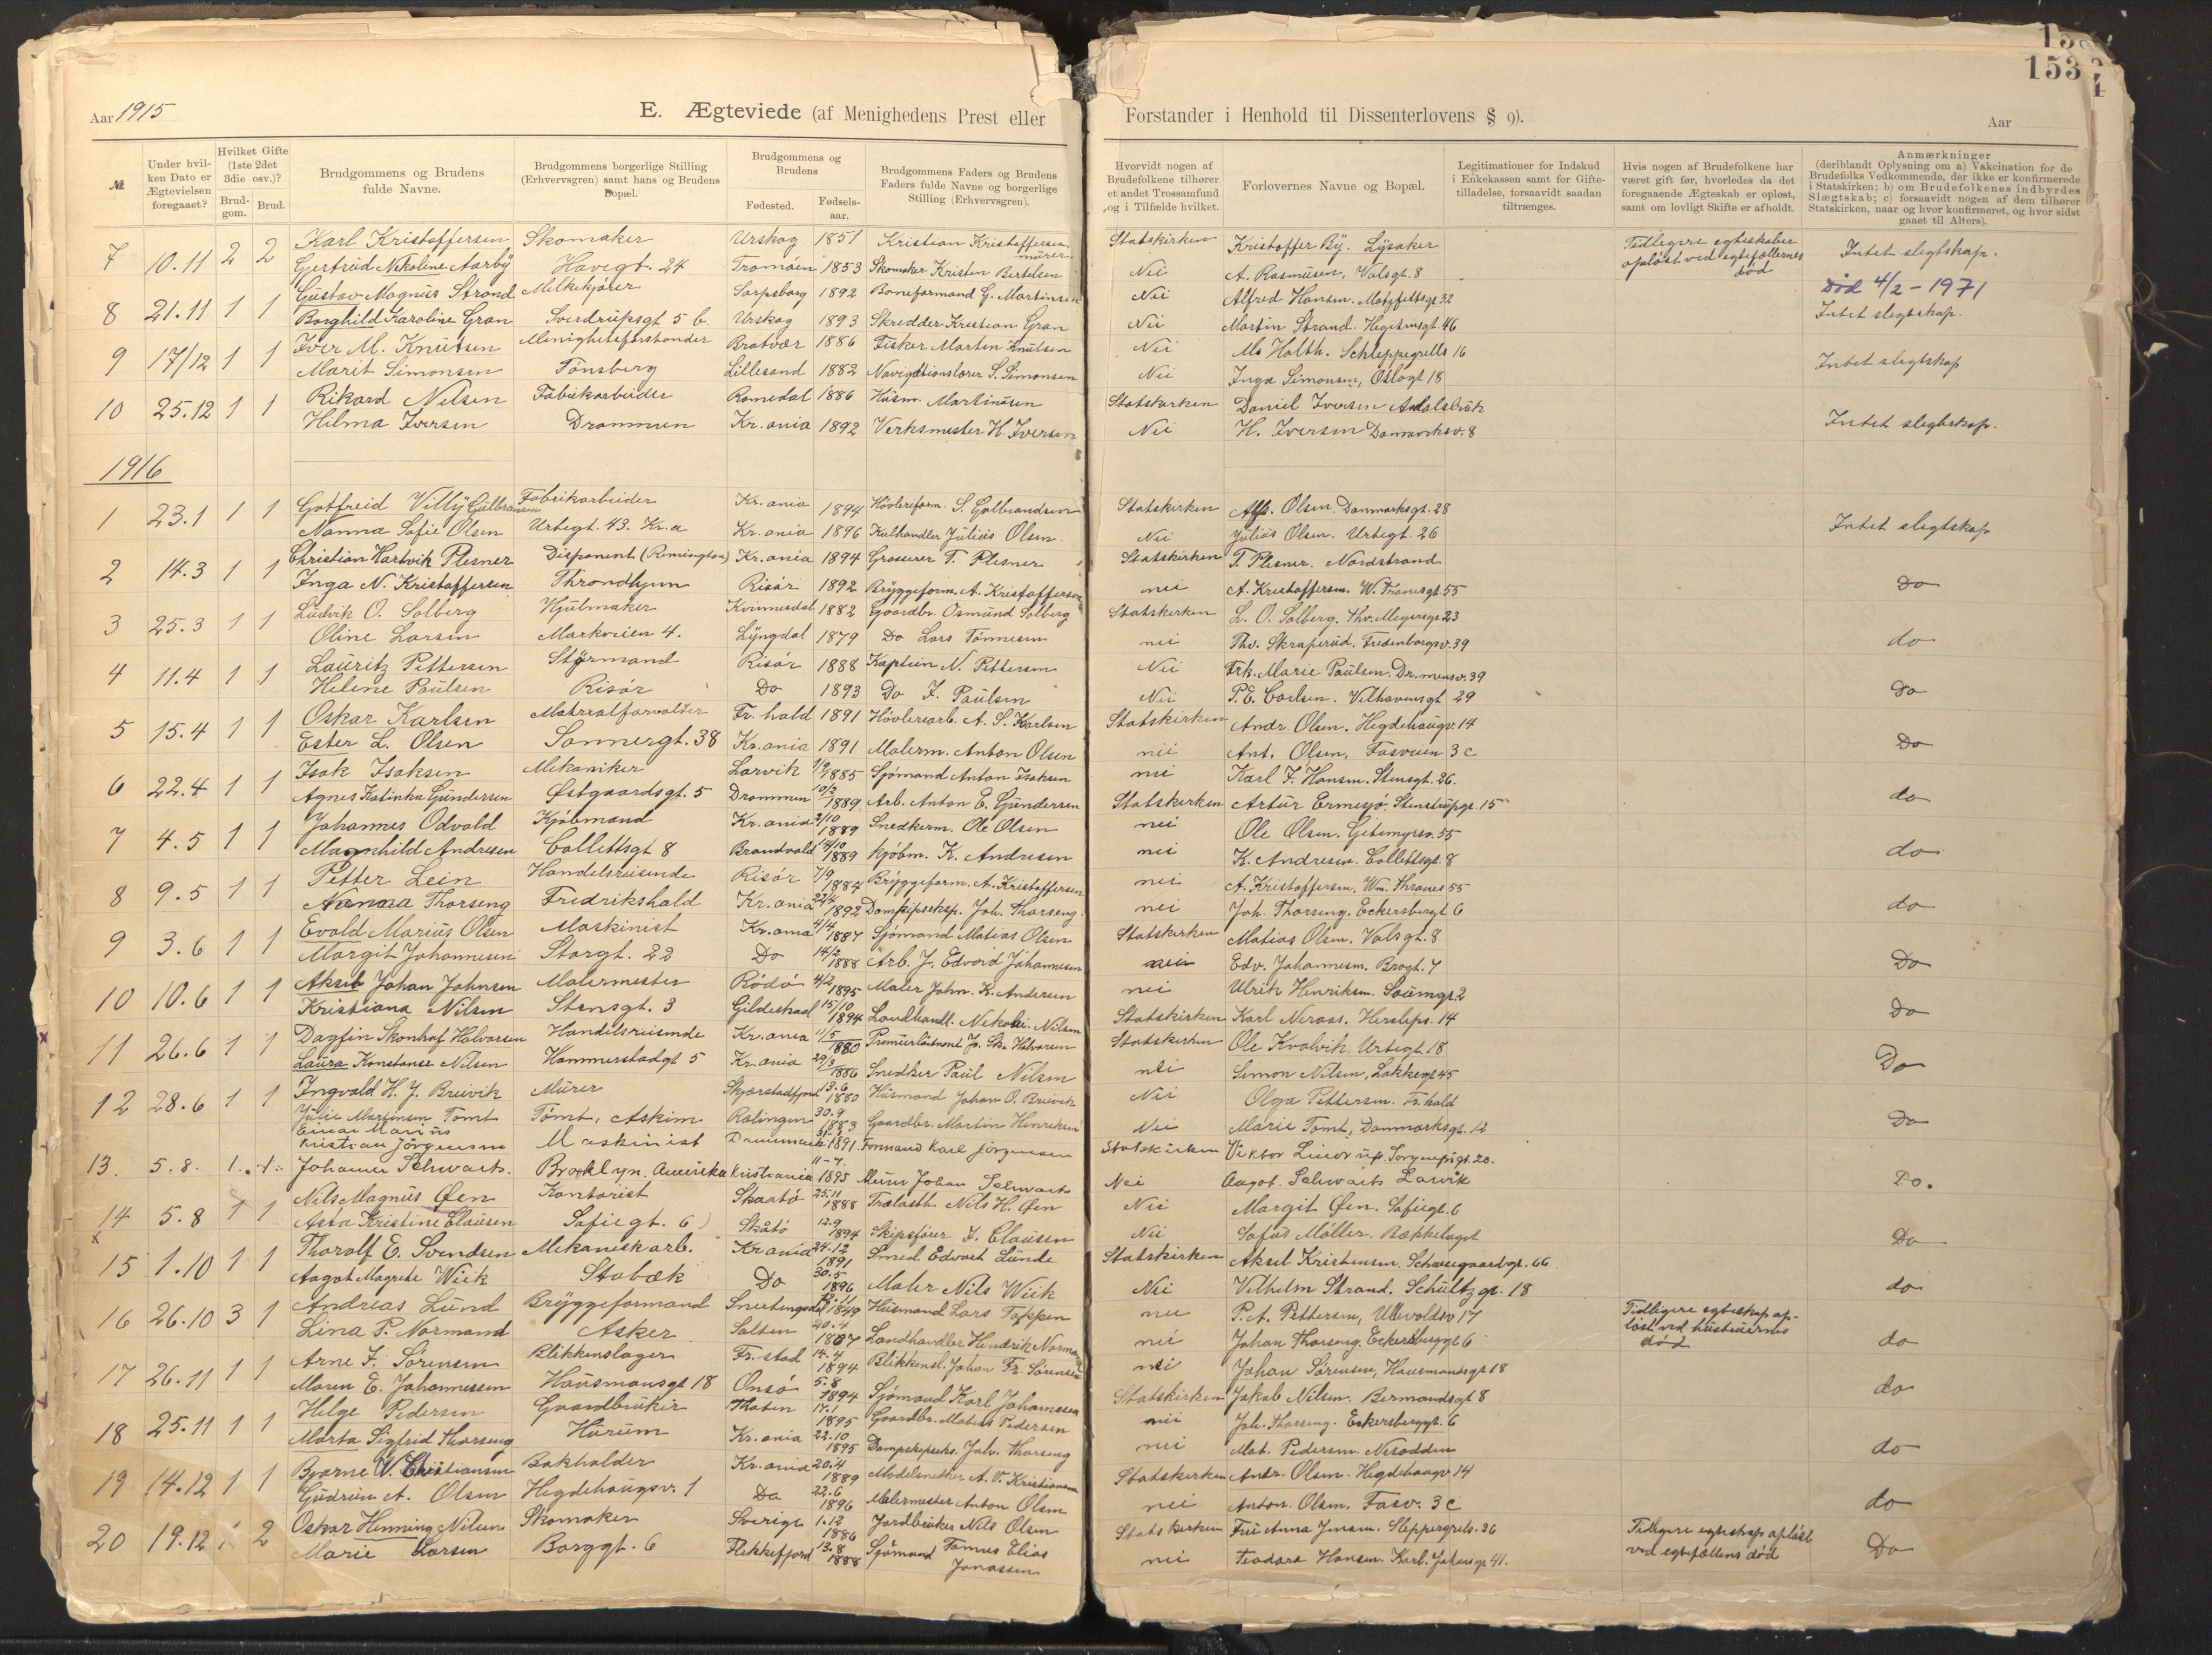 153
Aar 1915
E. Ægteviede (af Menighedens Prest eller
Forstander i Henhold til Dissenterlovens § 9).
Aar
№
Under hvilken Dato er Ægtevielsen foregaaet?
Hvilket Gifte (1ste 2det 3die osv.)?
Brudgom.
Brud.
Brudgommens og Brudens fulde Navne.
Brudgommens borgerlige Stilling (Erhvervsgren) samt hans og Brudens Bopæl.
Brudgommens og Brudens
Fødested.
Fødselsaar.
Brudgommens Faders og Brudens Faders fulde Navne og borgerlige Stilling (Erhvervsgren).
Hvorvidt nogen af Brudefolkene tilhører et andet Trossamfund og i Tilfælde hvilket.
Forlovernes Navne og Bopæl.
Legitimationer for Indskud i Enkekassen samt for Giftetilladelse, forsaavidt saadan tiltrænges.
Hvis nogen af Brudefolkene har været gift før, hvorledes da det foregaaende Ægteskab er opløst, samt om lovligt Skifte er afholdt.
Anmærkninger
(deriblandt Oplysning om a) Vakcination for de Brudefolks Vedkommende, der ikke er konfirmerede i Statskirken; b) om Brudefolkenes indbyrdes Slægtskab; c) forsaavidt nogen af dem tilhører Statskirken, naar og hvor konfirmeret, og hvor sidst gaaet til Alters).
7 10.11 2 2 Karl Kristoffersen Skomaker Urskog 1851 Kristian Kristoffersen, murer Statskirken Kristoffer By. Lysaker Tidligere egteskaber opløst ved egtefællernes død Intet slegtskap.
Gertrud Nikoline Aarby Havegt. 24 Tromøen 1853 Skomaker Kristen Bertelsen Nei A. Rasmusen, Valsgt. 8
8 21.11 1 1 Gustav Magnus Strand Melkekjører Sarpsborg 1892 Baneformand G. Martinsen Nei Alfred Hansen. Motzfeltsgt 32 Død 4/2-1971
Borghild Karoline Gran Sverdrupsgt 5 b. Urskog 1893 Skredder Kristian Gran Nei Martin Strand. Hegermsgt. 46 Intet slegtskap.
9 17/12 1 1 Iver M. Knutsen Menighetsforstander Bratvær 1886 Fisker Martin Knutsen Nei Ms Holth. Schleppegrells 16 Intet slegtskap
Marit Simonsen Tønsberg Lillesand 1882 Navigationslærer S. Simonsen Nei Inga Simonsen, Oslogt 18
10 25.12 1 1 Rikard Nilsen Fabrikarbeider Romedal 1886 Husm. Martinusen Statskirken Daniel Iversen
Hilma Iversen Drammen Kr.ania 1892 Verksmester H. Iversen Nei H. Iversen Danmarksv. 8 Intet slegtskap.
1916
1 23.1 1 1 Gotfreid Villy Gulbransen Fabrikarbeider Kr.ania 1894 Høvleriform. S. Gulbrandsen Statskirken Alf. Olsen. Danmarksgt. 28
Nanna Sofie Olsen Urtegt. 43. Kr.a Kr.ania 1896 Kulhandler Julius Olsen Nei Julius Olsen. Urtegt. 26 Intet slegtskap
2 14.3 1 1 Christian Hartvik Plesner Disponent (Remington) Kr.ania 1894 Grosserer T. Plesner Statskirken T. Plesner. Nordstrand
Inga N. Kristoffersen Throndhjem Risør 1892 Bryggeform. A. Kristoffersen nei A. Kristoffersen. W. Tranesgt. 55 Do
3 25.3 1 1 Ludvik O. Solberg Hjulmaker Kvinnesdal 1882 Gaardbr. Osmund Solberg Statskirken L. O. Solberg. Thv. Meyersgt 23
Oline Larsen Markveien 4. Lyngdal 1879 Do Lars Tønnesen nei Thv. Skraperud. 39 do
4 11.4 1 1 Lauritz Pettersen Styrmand Risør 1888 Kaptein N. Pettersen Nei Frk. Marie Paulsen. Dr.mensv. 39
Helene Paulsen Risør Do 1893 Do J. Paulsen Nei P. E. Carlsen. Velhavensgt 29 Do
5 15.4 1 1 Oskar Karlsen Matrialforvalter Fr.hald 1891 Høvleriarb. A. S. Karlsen Statskirken Andr. Olsen. Hegdehaugv. 14
Ester L. Olsen Sannergt. 38 Kr.ania 1891 Malerm. Anton Olsen nei Ant. Olsen, Fasveien 3 c Do
6 22.4 1 1 Isak Isaksen Mekaniker Larvik 1885 Sjømand Anton Isaksen nei Karl F. Hansen. Stensgt. 26.
Agnes Katinka Gundersen Østgaardsgt. 5 Drammen 10/2 1889 Arb. Anton E. Gundersen Statskirken Artur Ermesjø. Stenstrupgt. 15 do
7 4.5 1 1 Johannes Odvald Kjøbmand Kr.ania 2/10 1889 Snedkerm. Ole Olsen nei Ole Olsen. Geitemyrsv. 55
Magnhild Andresen Collettsgt 8 Brandvald 14/10 1889 Kjøbm. K. Andresen nei K. Andresen. Collettsgt. 8 do
8 9.5 1 1 Petter Lein Handelsreisende Risør 7/9 1884 Bryggeform. A. Kristoffersen nei A. Kristoffersen. Wm. Thranes 55
Nanna Thorseng Fredrikshald Kr.ania 22/4 1892 Damskipseksp. Joh. Thorseng nei Joh. Thorseng. Eckersbergt 6 do
9 3.6 1 1 Evald Marius Olsen Maskinist Kr.ania 4/4 1887 Sjømand Matias Olsen Statskirken Matias Olsen. Valsgt. 8
Margit Johannesen Storgt. 22 Do 14/2 1888 Arb. J. Edvard Johannesen nei Edv. Johannesen. Brogt. 7 Do
10 10.6 1 1 Aksel Johan Johnsen Malermester Rødø 4/2 1895 Maler John. K. Andersen nei Ulrik Henriksen. Saumgt. 2
Kristiana Nilsen Stensgt. 3 Gildeskaal 15/10 1894 Landhandl. Nikolai. Nilsen Statskirken Karl Neraas. Hersleps. 14 Do
11 26.6 1 1 Dagfin Skonhof Halvorsen Handelsreisende Kr.ania 11/5 1880 Premierløitnant Jo. Halvorsen Statskirken Ole Kvalvik. Urtegt. 18
Laura Konstanse Nilsen Hammerstadgt 5 Kr.ania 29/3 1886 Snedker Paul Nilsen nei Simon Nilsen, Lakkegt 45 Do
12 28.6 1 1 Ingvald H. J. Breivik Murer Skjærstadfjord 13.6 1880 Husmand Johan O. Breivik Nei Olga Pettersen. Fr.hald
Julie Martinsen Tomt Tomt, Askim Rælingen 30.9 1883 Gaardbr. Martin Henriksen Nei Marie Tomt, Danmarksgt. 12 Do
13. 5.8. 1. 1. Einar Marius Kristian Jörgensen Maskinist 1891. Formand Karl Jörgensen Statskirken Viktor
Johanne Schwarts. Brooklyn. Amerika Kristiania 11-7. 1895 Murer Johan Schwarts Nei Aagot. Schwarts Larvik Do.
14 5.8 1 1 Nils Magnus Øen Kontorist Skaatø 25.11 1888 Trælasth. Nils H. Øen Nei Margit Øen. Sofiegt. 6
x Asta Kristine Clausen Sofiegt. 6 Skåtø 12.9 1894 Skipsfører J. Clausen Nei Sofus Møller. Bækkelaget Do
15 1.10 1 1 Thorolf E. Svendsen Mekanisk arb. Kr.ania 24.12 1891 Smed Edvart Lunde Statskirken Aksel Kristensen. Schweigaardsgt. 66
Aagot Magrete Wiik Stabæk Do 30.5 1896 Maler Nils Wiik Nei Vilhelm Strand. Schultzgt. 18 do
16 26.10 3 1 Andreas Lund Bryggeformand Snertingdal 12.11 1849 Husmand Lars Toppen nei P. A. Pettersen, Ullevoldsv 17 Tidligere egteskap opløst ved hustruernes død
Lina P. Normand Asker Salten 20.4 1867 Landhandler Hendrik Normand nei Johan Thorseng. Eckersbergt 6 do
17 26.11 1 1 Arne F. Sørensen Blikkenslager Fr.stad 14.4 1894 Blikkensl. Johan Fr. Sørensen nei Johan Sørensen, Hausmandsgt 18
Maren E. Johannessen Hausmansgt 18 Onsø 5.8 1894 Sjømand Karl Johannessen Statskirken Jakob Nilsen. Bermandsgt 8 do
18 25.11 1 1 Helge Pedersen Gaardbruker 17.1 1895 Gaardbr. Matius Pedersen nei Joh. Thorseng. Eckersberggt. 6
Marta Sigfrid Thorseng Hurum Kr.ania 22.10 1895 Dampskipseks. Joh. Thorseng nei Mat. Pedersen. Nesodden do
19 14.12 1 1 Bjarne W. Christiansen Bokholder Kr.ania 20.4 1889 Modelsnekker A. V. Kristiansen Statskirken Andr. Olsen. Hegdehaugv 14
Gudrun A. Olsen Hegdehaugsv. 1 Do 22.6 1896 Malermester Anton Olsen nei Anton. Olsen. Fasv. 3 c do
20 19.12 1 2 Oskar Henning Nilsen Skomaker Sverige 1.12 1886 Jordbruker Nils Olsen Statskirken Fru Anna Jensen. Sleppegrels. 26 Tidligere egteskap opløst ved egtefællens død
Marie Larsen Borggt. 6 Flekkefjord 13.8 1888 Sjømand Tønnes Elias Jonassen nei Teodora Hansen. Karl. Johansgt 41. Do